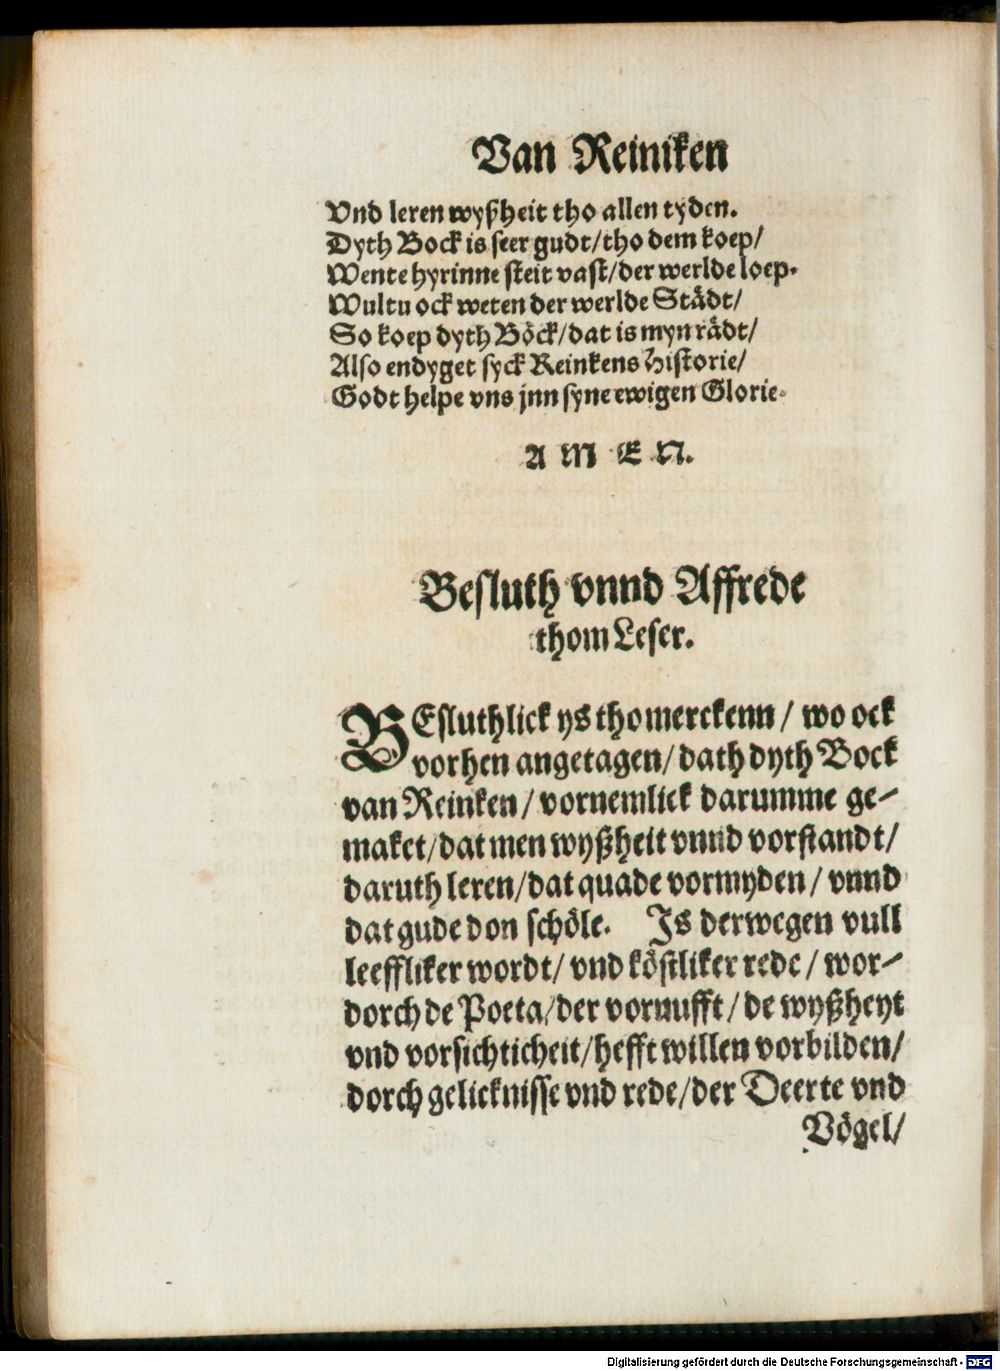 Van Reiniken
Vnd leren wyßheit tho allen tyden.
Dyth Bock is seer gudt/tho dem koep/
Wente hyrinne steit vast/der werlde loep.
Wultu ock weten der werlde Städt/
So koep dyth Böck/dat is myn rädt/
Also endyget syck Reinkens Historie/
Godt helpe vns jnn syne ewigen Glorie.
A M E N.
Besluth vnnd Affrede
thom Leser.
BEsluthlick ys thomerckenn / wo ock
vorhen angetagen/dath dyth Bock
van Reinken / vornemlick darumme ge-
maket/dat men wyßheit vnnd vorstandt/
daruth leren/dat quade vormyden / vnnd
dat gude don schöle. Is derwegen vull
leefflikeer wordt/ vnd köstliker rede / wor-
dorch de Poeta/der vornufft / de wyßheyt
vnd vorsichticheit/hefft willen vorbilden/
dorch gelicknisse vnd rede/der Deerte vnd
Vögel/
Digitalisierung gefördert durch die Deutsche Forschungsgemeinschaft - DFG